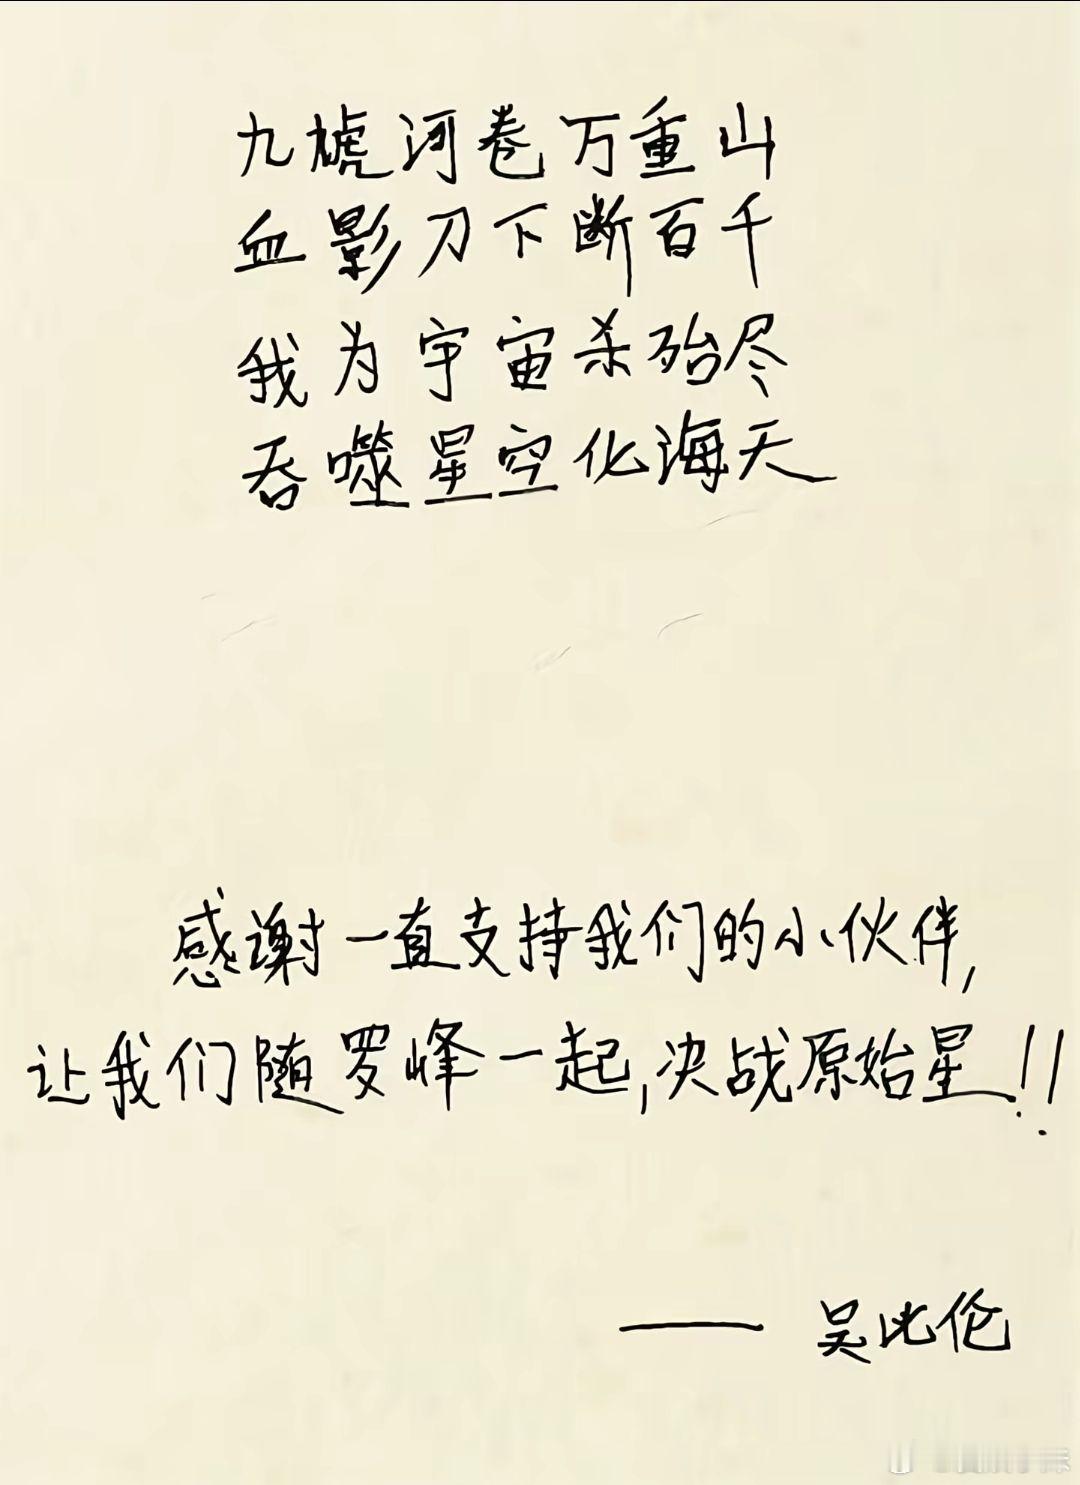 九椃河卷万重山
血影刀下断百千
我为宇宙杀殆尽
吞噬星空化海天
感谢一直支持我们的小伙伴,
让我们随罗峰一起,决战原始星!!
——吴比伦